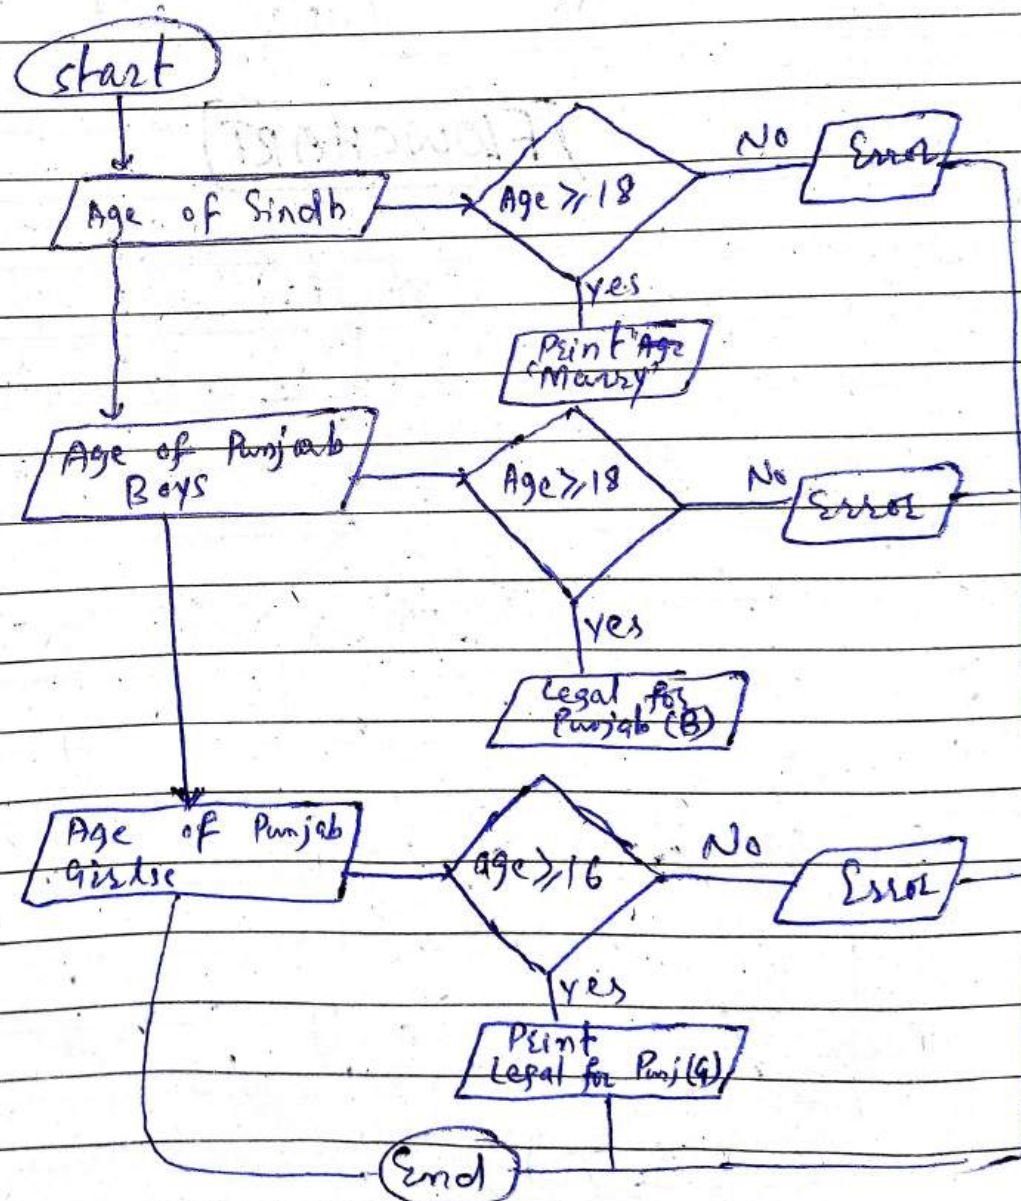 start
Age of Sindh
Age ⩾ 18
No
Error
yes
Print "Age
"Marry"
Age of Punjab
Boys
Age ⩾ 18
No
Error
yes
Legal for
Punjab (B)
Age of Punjab
age ⩾ 16
No
Error
yes
Print
Legal for Punj(G)
End